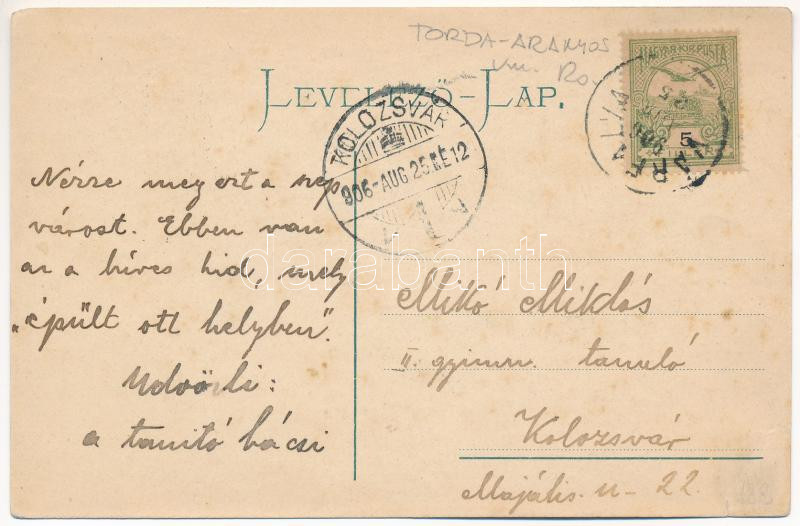 TORDA-ARANYOS
vm. Ro.
LEVELEZŐ-LAP.
MAGYAR KIR. POSTA
5
KOLOZSVÁR
906-AUG.25.KE12
VÁRFALVA
Nézze meg ezt a szép
várost. Ebben van
az a híres híd, mely
"épült ott helyben".
Üdvözli:
a tanító bácsi
Mikó Miklós
II. gymn. tanuló
Kolozsvár
Majális-u- 22.
darabanth